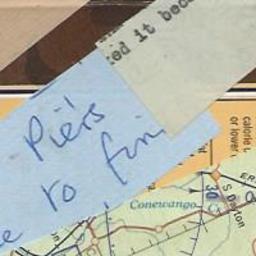 ed it beca
Piers
e to fin
calorie
or lower
Conewango
30
S Dayton